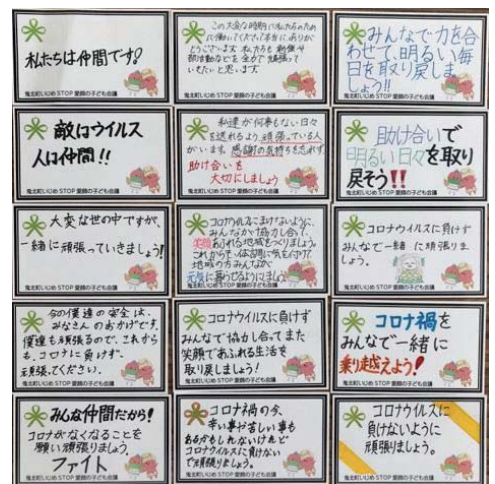 私たちは仲間です!
鬼北町いじめSTOP愛顔の子ども会議
この大変な時期に私たちのため
に働いてくださって本当にありがと
うございます。私たちも勉強や
部活動などを全力で頑張って
いきたいと思います
鬼北町いじめSTOP愛顔の子ども会議
みんなで力を合
わせて、明るい毎
日を取り戻しま
しょう!!
鬼北町いじめSTOP愛顔の子ども会議
敵はウイルス
人は仲間!!
鬼北町いじめSTOP愛顔の子ども会議
私達が何事もない日々
を送れるよう、頑張っている人
がいます。感謝の気持ちも忘れず
助け合いを
大切にしましょう
鬼北町いじめSTOP愛顔の子ども会議
助け合いで
明るい日々を取り
戻そう!!
鬼北町いじめSTOP愛顔の子ども会議
大変な世の中ですが、
一緒に頑張っていきましょう!
鬼北町いじめSTOP愛顔の子ども会議
コロナウイルスにまけないように、
みんなが協力し合って、
笑顔あふれる地域をつくりましょう。
これからも体調に気を付けて、
地域の方みんなが
元気に暮らせるようにしましょう
鬼北町いじめSTOP愛顔の子ども会議
コロナウイルスに負けず
みんなで一緒に頑張りま
しょう。
鬼北町いじめSTOP愛顔の子ども会議
今の僕達の安全は、
みなさんのおかげです。
僕達も頑張るので、これから
も、コロナに負けず、
頑張ってください。
鬼北町いじめSTOP愛顔の子ども会議
コロナウイルスに負けず
みんなで協力し合ってまた
笑顔であふれる生活を
取り戻しましょう!
鬼北町いじめSTOP愛顔の子ども会議
コロナ禍を
みんなで一緒に
乗り越えよう!
鬼北町いじめSTOP愛顔の子ども会議
みんな仲間だから!
コロナがなくなることを
願い頑張りましょう。
ファイト
鬼北町いじめSTOP愛顔の子ども会議
コロナ禍の今、
辛い事や苦しい事も
あるかもしれないけれど
コロナウイルスに負けない
で頑張りましょう。
鬼北町いじめSTOP愛顔の子ども会議
コロナウイルスに
負けないように
頑張りましょう。
鬼北町いじめSTOP愛顔の子ども会議